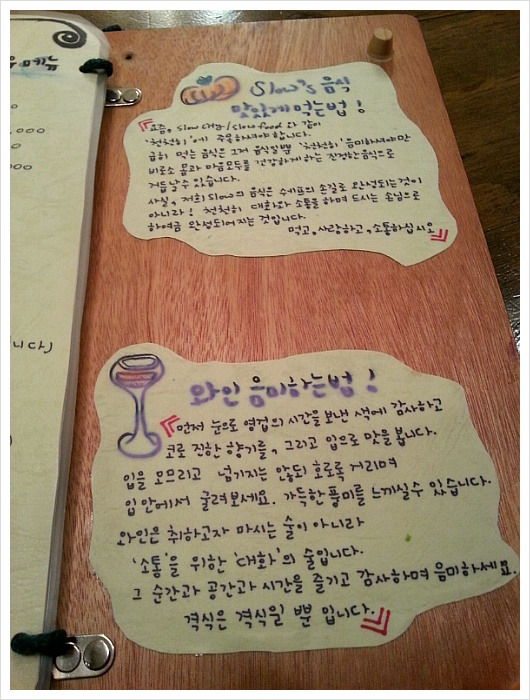 메뉴
.000
000
0
니다)
Slow's 음식
맛있게 먹는법!
요즘, slow city/slow food 와 같이
'천천히'에 주목하셔야합니다.
급히 먹는 음식은 그저 음식일뿐 '천천히' 음미하셔야만
비로소 몸과 마음모두를 건강하게하는 진정한음식으로
거듭날수 있습니다.
사실, 저희 slow의 음식은 쉐프의 손길로 완성되는것이
아니라! 천천히 대화와 소통을하며 드시는 손님으로
하여금 완성되어지는 것입니다.
먹고,사랑하고,소통하십시오
와인 음미하는법!
먼저 눈으로 영겁의 시간을 보낸 색에 감사하고
코로 진한 향기를, 그리고 입으로 맛을 봅니다.
입을 모으리고 넘기지는 않되 호로록 거리며
입안에서 굴려보세요. 가득한 풍미를 느끼실수 있습니다.
와인은 취하고자 마시는 술이 아니라
'소통'을 위한 '대화'의 술입니다.
그 순간과 공간과 시간을 즐기고 감사하며 음미하세요.
격식은 격식일 뿐 입니다.